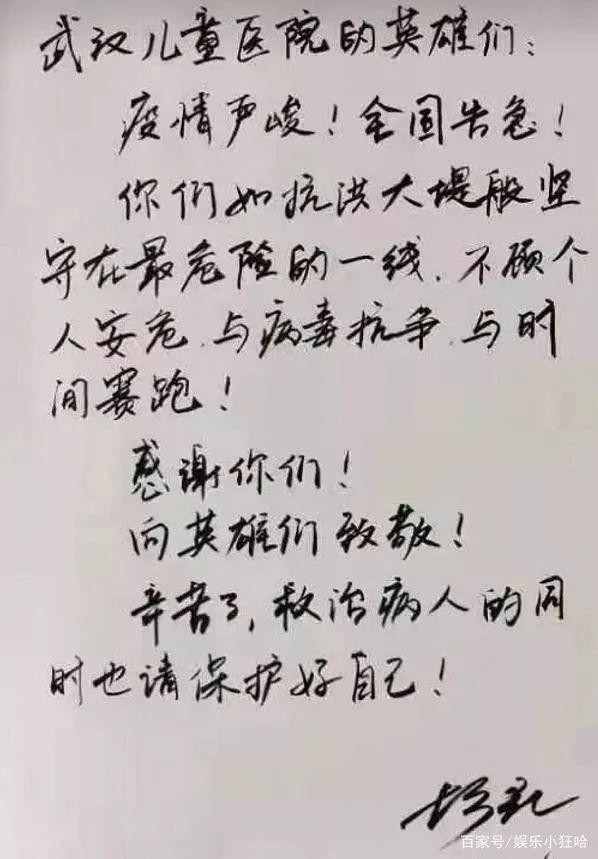 武汉儿童医院的英雄们：
疫情严峻！全国告急！
你们如抗洪大堤般坚
守在最危险的一线，不顾个
人安危，与病毒抗争，与时
间赛跑！
感谢你们！
向英雄们致敬！
辛苦了，救治病人的同
时也请保护好自己！
百家号/娱乐小狂哈